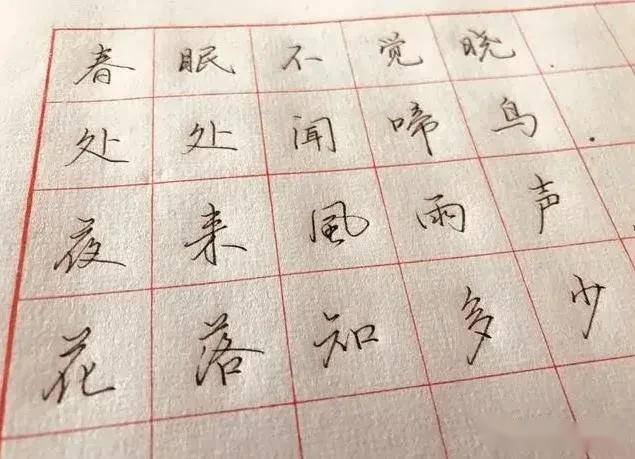 春眠不觉晓
处处闻啼鸟.
夜来風雨声.
花落知多少